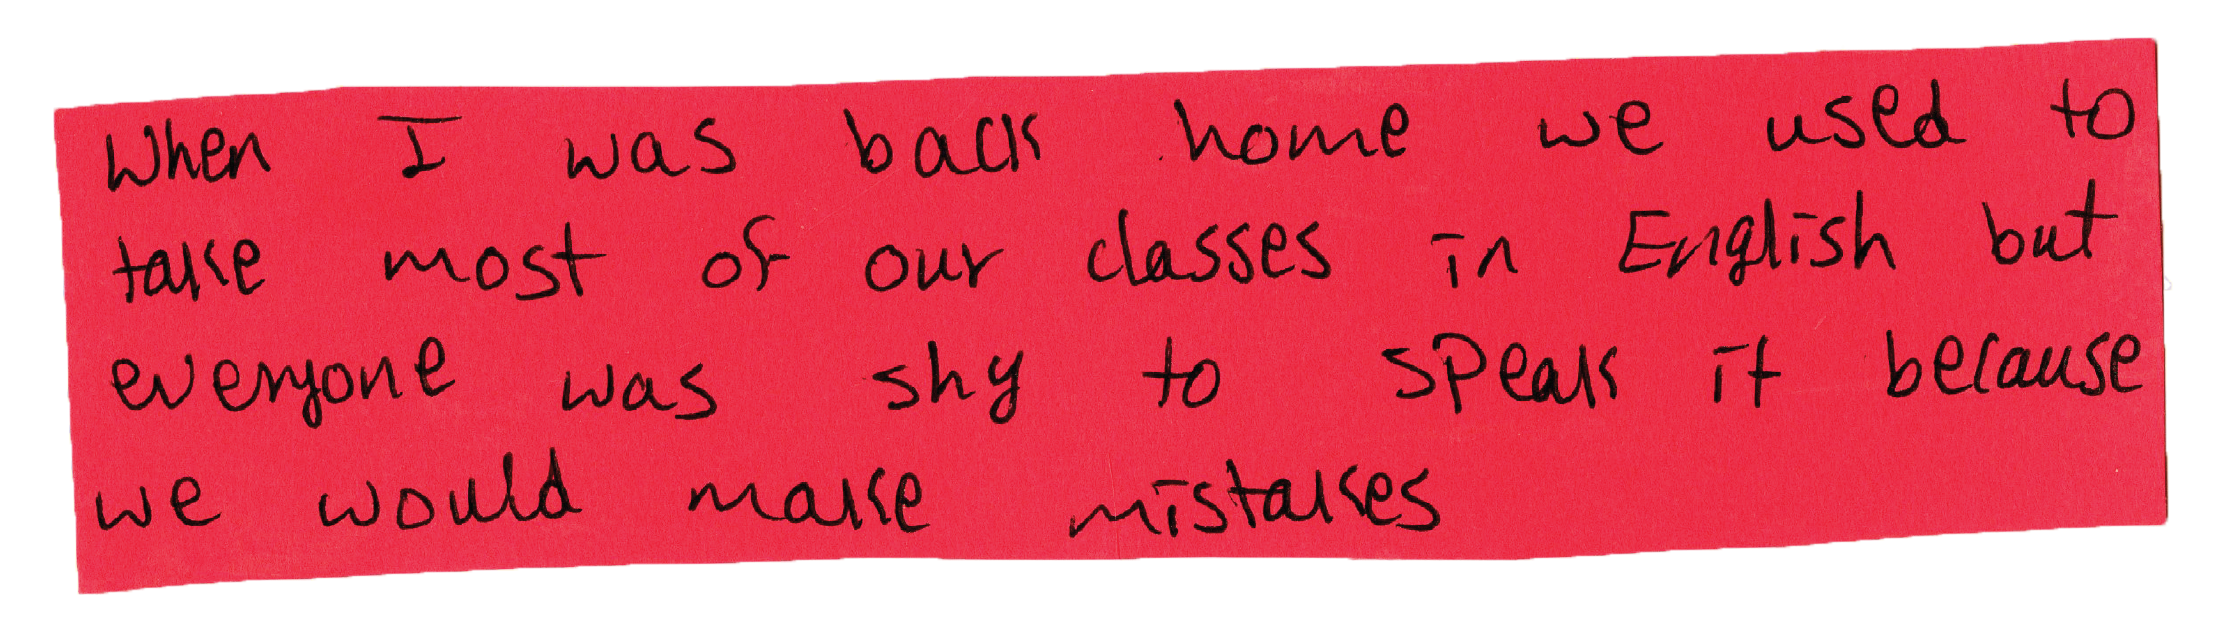 When I was back home we used to
take most of our classes in English but
everyone was shy to speak it because
we would make mistakes